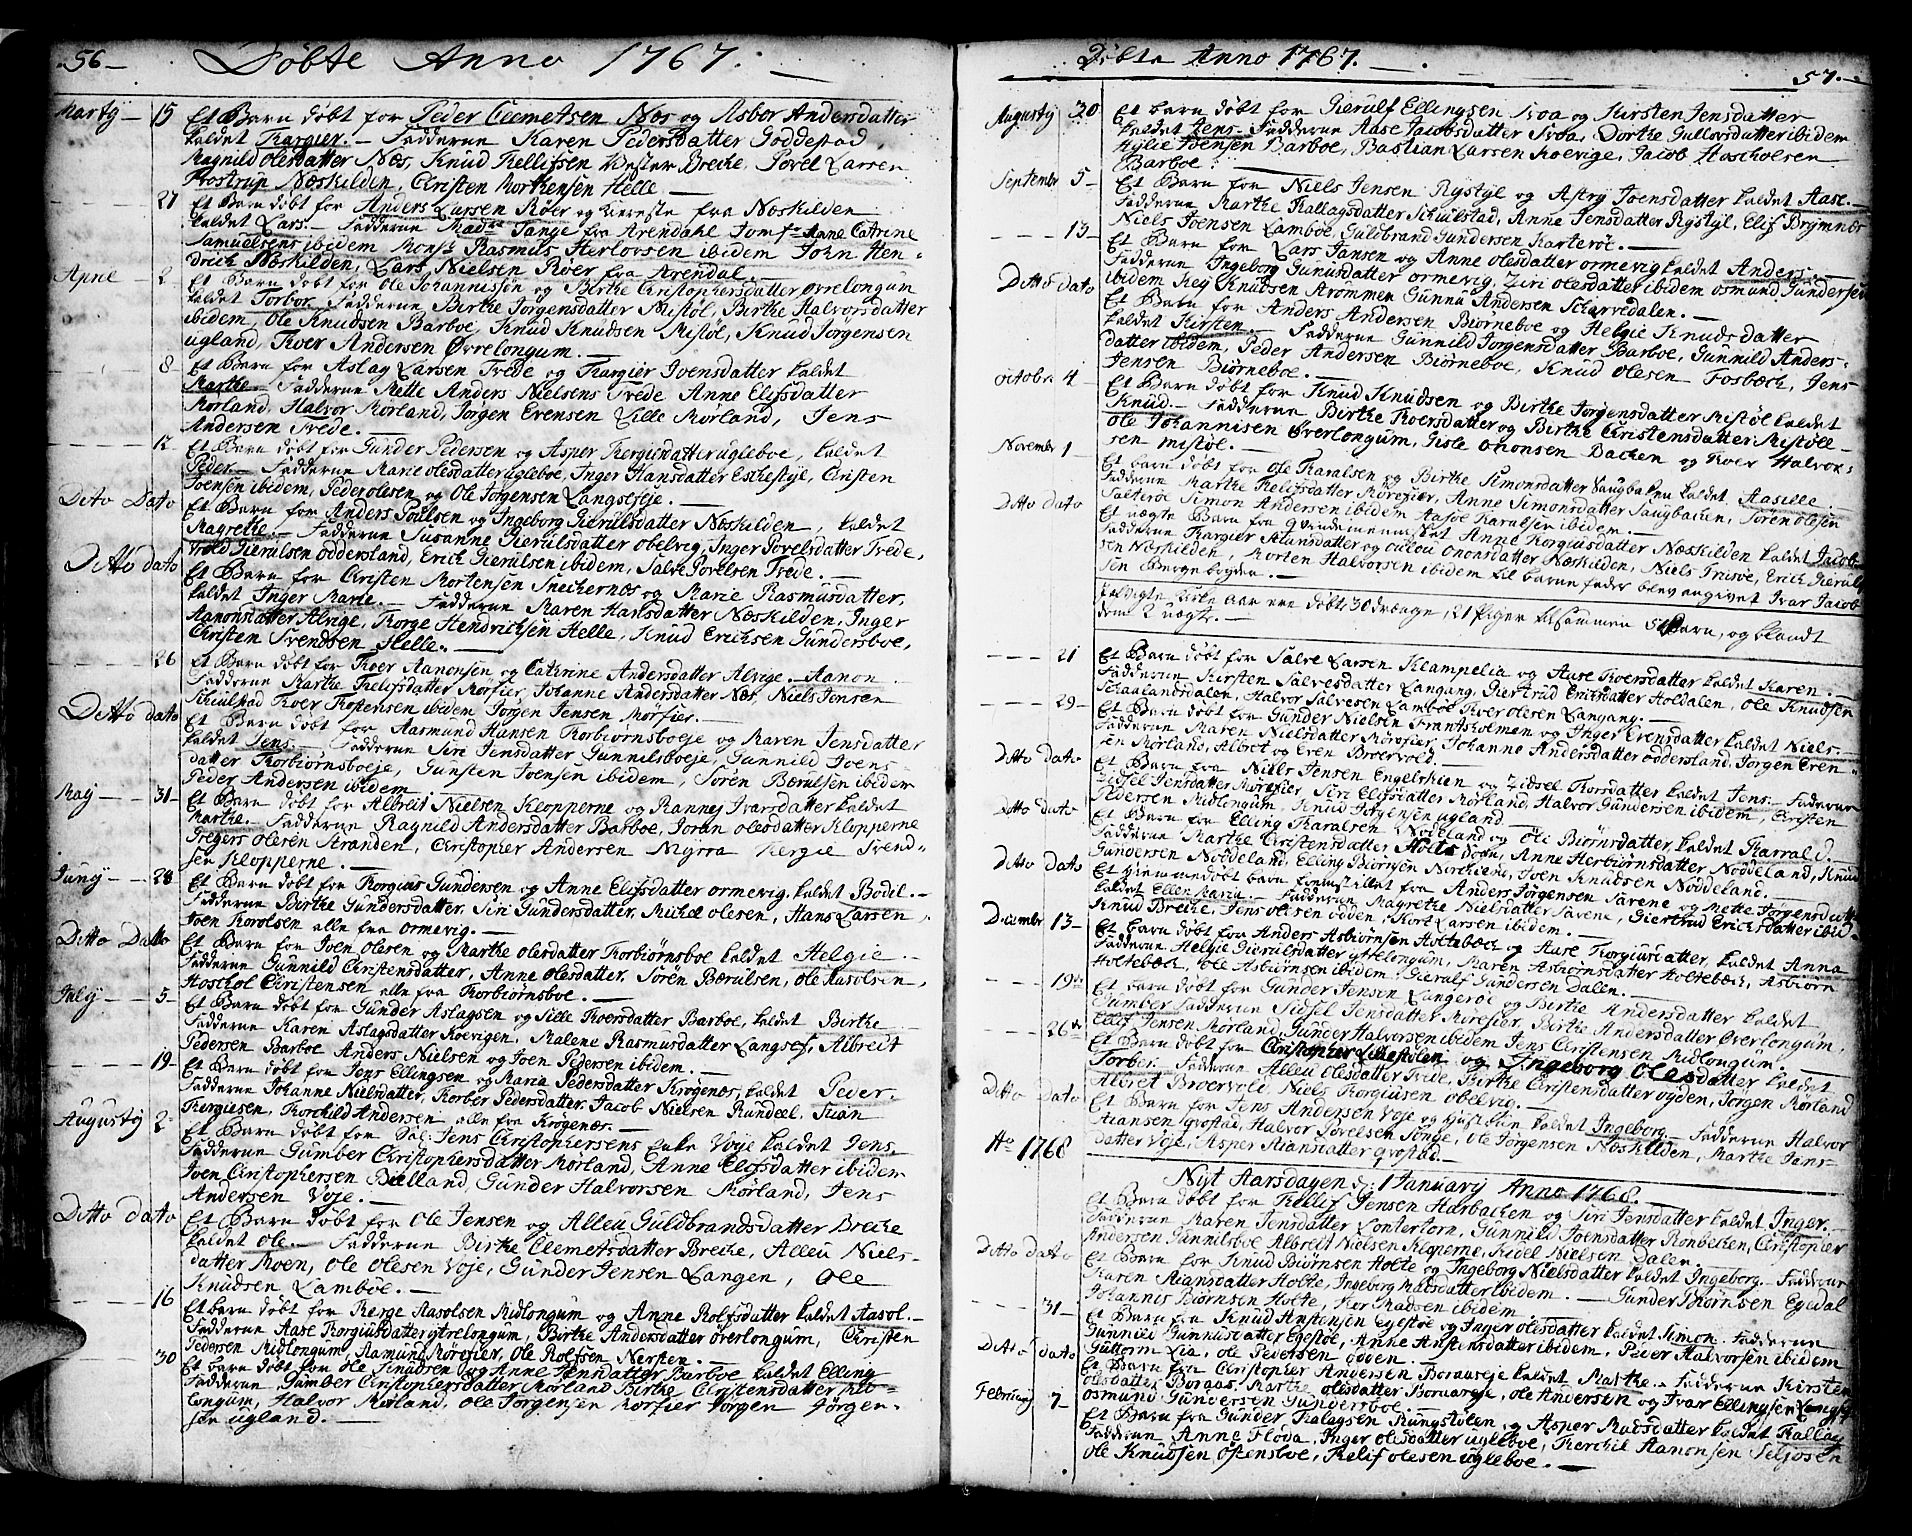 56
Döbte Anno 1767.
Marty 15 Et Barn döbt for Peder Clemetsen Næs og Asbor Andersdatter
kaldet Targier. Fadderne Karen Pedersdatter Goddestad
Magnild olesdatter Næs, Knud Kellifsen Vester Breike Povel Larsen
Frostrup Næskilden, Christen Morthensen Helle
27 Et Barn döbt for Anders Larsen Röer og kiereste fra Næskilden
kaldet Lars. Fadderne Mad. Tange fra Arendahl Jomf. Anne Catrine
Samuelsens ibidem Mons. Rasmus Herlovsen ibidem John Hen-
drich Næskilden, Lars Nielsen Röer fra Arendal
2 Et Barn döbt for Ole Johannissön og Birthe Christophersdatter övrelongum
kaldet Torbor. Fadderne Birthe Jörgensdatter Mistöl, Birthe Halvorsdatter
ibidem, Ole Knudsen Barboe, Knud Knudsen Mistöl, Knud Jörgensen
ugland, Thoer Andersen Övrelongum.
8 Et Barn for Aslag Larsen Trede og Targier Joensdatter kaldet
Marthe. Fadderne Mette Anders Nielsens Trede Anne Elifsdatter
Mörland, Halvor Mörland, Jörgen Evensen Lille Mörland, Jens
Andersen Trede.
12 Et Barn döbt for Gunder Pedersen og Asper Tergiusdatter ugleboe, kaldet
Peder. Fadderne Marie olesdatter ugleboe, Inger Hansdatter Eskestyl, Christen
Joensen ibidem, Peder olesen og Ole Jörgensen Langseeje.
Dito Dato Et Barn for Anders Poulsen og Ingeborg Gierulsdatter Næskilden, kaldet
Magrethe. Fadderne Susanne Gierulsdatter obelvig, Inger Povelsdatter Trede,
Wrold Gierulsen odderstand, Erich Gierulsen ibidem, Salve Povelsen Trede.
Ditto dato Et Barn for Christen Mortensen Sneckernæs og Marie Rasmusdatter,
kaldet Inger Marie. Fadderne Maren Hansdatter Næskilden, Inger
Aanonsdatter Alvige, Torge Hendrichsen Helle, Knud Erichsen Gundersboe,
Christen Svendsen Helle.
26 Et Barn döbt for Thoer Aanonsen og Cathrine Andersdatter Alvige. Aanon
Fadderne Marthe Thelifsdatter Morfier, Johanne Andersdatter Næs, Niels Jensen
Skiulstad Thoer Tostensen ibidem Jörgen Jensen Mörfier.
Ditto dato Et Barn döbt for Aasmund Hansen Torbiornsboeje og Maren Jensdatter
kaldet Jens. Fadderne Siri Jensdatter Gunnilsboeje, Gunnild Joens-
datter Torbiornsboeje, Gunsten Joensen ibidem, Sören Bærulsen ibidem
Peder Andersen ibidem
May 31 Et Barn döbt for Albreit Nielsen Klopperne og Rannej Ivarsdatter kaldet
Marthe. Fadderne Ragnild Andersdatter Barboe, Joran olesdatter Klopperne
Gregers olesen Stranden, Christopher Andersen Myrra Tergie Svend-
sen Klopperne.
Juny 28 Et Barn döbt for Torgius Gundersen og Anne Elifsdatter ormevig, kaldet Bodil.
Fadderne Birthe Gundersdatter, Siri Gundersdatter, Michel olesen, Hans Larsen
Joen Torolsen alle fra ormevig.
Ditto Datto Et Barn for Joen olesen og Marthe olesdatter Torbiornsboe kaldet Helgie.
Fadderne Gunnild Christensdatter, Anne olesdatter, Sören Bærulsen, ole Aasolsen,
Hoschol Christensen alle fra Torbiornsboe.
July 5 Et Barn döbt for Gunder Aslagsen og Sille Thoersdatter Barboe, kaldet Birthe
Fadderne Karen Aslagsdatter Koevigen, Malene Rasmusdatter Langsej, Albredt
Pedersen Barboe Anders Nielsen og Joen Pedersen ibidem.
19 Et Barn döbt for Jens Ellingsen og Maria Pedersdatter Krogenæs, kaldet Peder.
Fadderne Johanne Nielsdatter, Torber Pedersdatter, Jacob Nielsen Rundeel, Juan
Tergiesen, Torchild Andersen alle fra Krogenær.
Augusty 2 Et Barn döbt for Sal. Jens Christophersens Enke Voje kaldet Jens,
Fadderne Gumber Christophersdatter Mörland, Anne Elofsdatter ibidem
Joen Christophersen Bielland, Gunder Halvorsen Mörland, Jens
Andersen Voje.
Ditto dato Et Barn döbt for Ole Jensen og Alleu Guldbrandsdatter Breike
kaldet ole. Fadderne Birthe Clemetsdatter Breike, Alleu Niels-
datter Moen, ole olesen Voje, Gunder Jensen Langen, ole
Knudsen Lamboe.
16 Et barn döbt for Terge Aasolsen Midlongum og Anne Rolfsdatter kaldet Aasol.
Fadderne Aase Torgiusdatter yttrelongum, Birthe Andersdatter överlongum, Christen
Pedersen Midlongum, Aamund Mörefier, Ole Rolfsen Nersten.
30 Et barn döbt for ole Knudsen og Anne Jensdatter Barboe kaldet Elling
Fadderne Gumber Christophersdatter Mörland Birthe Christensdatter Mit-
longum, Halvor Mörland, Ole Jörgensen Morfier Jörgen Jörgen-
sen ugland.
Döbte Anno 1767.
57.
Augusty 30 Et barn döbt for Gierulf Ellingsen Froa og Kirsten Jensdatter
kaldet Jens. Fadderne Aase Jacobsdatter Froa, Dorthe Gullovsdatter ibidem
Kylie Joensen Barboe, Bastian Larsen Koevige, Jacob Hoscholsen
Barboe.
Septembr 5 Et Barn for Niels Jensen Rystyl og Astry Joensdatter kaldet Aase.
Fadderne Marthe Tallagsdatter Schiulstad, Anne Jensdatter Rystyl, Elif Brymnes
Niels Joensen Lamboe, Guldbrand Gundersen Karteröe.
13 Et Barn for Lars Jansen og Anne olesdatter ormevig kaldet Anders.
Fadderne Ingeborg Gunusdatter ormevig, Ziri olesdatter ibidem osmund Gundersen
ibidem Rej Knudsen Strömmen Gunnu Andersen Scharvedalen.
Ditto dato Et Barn for Anders Andersen Biörneboe og Helgie Knudsdatter
kaldet Kirsten. Fadderne Gunnild Jorgensdatter Barboe, Gunnild Anders-
datter ibidem, Peder Andersen Biörneboe, Knud Olesen Fosbæch, Jens
Jensen Biörneboe.
octobr 4 Et Barn döbt for Knud Knudsen og Birthe Jörgensdatter Mistöl kaldet
Knud. Fadderne Birthe Thoersdatter og Birthe Christensdatter Mistöll
ole Johannisen Överlongum, Gisle ononsen Backen og Thoer Halvor-
sen mistöl.
Novembr 1 Et barn döbt for Ole Haralsen og Birthe Simonsdatter Saugbaken kaldet Aasille
Fadderne Marthe Thelifsdatter Mörefier, Anne Simonsdatter Saugbachen, Sören olesen
Salteröe Simon Andersen ibidem Aasöe Haralsen ibidem.
Ditto dato Et uægte Barn fra qvindemennsket Anne Torgiusdatter Næskilden kaldet Jacob
Fadderne Targier Asiunsdatter og oulou ononsdatter Næskilden, Niels Trisöe, Erich Gieruls-
sen Næskilden, Morten Halvorsen ibidem til barne fader blev angivet Ivar Jacob
sen Bergebogden.
Kirke aar ere döbt 30 drenge, 21 Piger tilsammen 51 Barn, og blandt
dem 2 uægte.
21 Et Barn döbt for Salve Larsen Klampelia og Aase Thoersdatter kaldet Karen.
Fadderne Kirsten Salvesdatter Langang, Giertrud Erichsdatter Holdalen, ole Knudsen
Schaalandsdalen, Halvor Salvesen Lamboe Thoer olesen Langang.
29 Et Barn döbt for Gunder Nielsen Frantsholmen og Inger Evensdatter kaldet Niels.
Fadderne Maren Nielsdatter Mörefier, Johanne Andersdatter odderstand, Jorgen Even-
sen Mörland, Albret og Even Broervold.
Ditto dato Et Barn fra Niels Jensen Engelskien og Zidsel Thorsdatter kaldet Jens. Fadderne
Zidsel Jensdatter Morefier, Siri Elifsdatter Mörland, Halvor Gundersen ibidem, Christen
Pedersen Midlongum, Knud Jörgensen ugland.
Ditto dato Et Barn for Elling Haralsen Noddeland og Öli Biörnsdatter, kaldet Harrald.
Fadderne Marthe Christensdatter Holte, Anne Herbiörnsdatter Nöddeland, Knud
Gundersen Noddeland, Elling Biörnsen Norchien, Joen Knudsen Nöddeland.
Ditto dato Et hiemmedöbt barn fremstillet fra Anders Jörgensen Savene og Mette Jörgensdatter
kaldet Ellen Maria. Fadderne Magrethe Nielsdatter Savene, Giertrud Erichsdatter ibid.
Knud Breike, Jens olesen odden, Kort Larsen ibidem.
Decembr 13 Et Barn döbt for Anders Asbiörnsen Holtebæch og Aase Torgiusdatter, kaldet Anna
Fadderne Helgie Gierulsdatter yttelongum, Maren Asbiörnsdatter Holtebæch, Asbiörn
Holtebæch, ole Asbiörnsen ibidem, Gierulf Gundersen Dalen.
19de Et barn döbt for Gunder Jensen Langeröe og Birthe Andersdatter kaldet
Gumber. Fadderne Sidsel Jensdatter Mörefier, Birthe Andersdatter Överlongum,
Ellif Jensen Mörland, Gunder Halvorsen ibidem Jens Christensen Midlongum,
26de Et Barn döbt for Christopher Lillestölen og Ingeborg Olesdatter kaldet
Torber. Fadderne Alleu olesdatter Trede, Birthe Christensdatter ogden, Jorgen Mörland
Albret Broervold, Niels Torgiusen obelvig.
Ditto dato Et Barn döbt for Jens Andersen Voje og Hustrue kaldet Ingeborg. Fadderne Halvor
Aiansen qvostad, Halvor Povelsen Songe, Ole Jörgensen Næskilden, Marthe Jans-
datter Voje, Asper Aiansdatter qvostad.
Ao 1768
Nyt Aarsdagen d: 1 January Anno 1768.
Et Barn döbt for Thellif Jensen Harbachen og Siri Jensdatter kaldet Inger.
Fadderne Maren Jensdatter Lontertorn, Gunnild Joensdatter Ronbeken, Christopher
Andersen Gunnilsboe Albredt Nielsen Kloperne, Kidel Nielsen Dalen
Ditto dato Et Barn for Knud Biörnsen Holte og Ingeborg Nielsdatter kaldet Ingeborg. Fadderne
Karen Aiansdatter Holte, Ingeborg Madsdatter ibidem. Gunder Biörnsen Egedal
Johannis Biörnsen Holte, Thor Madsen ibidem
31 Et Barn for Knud Anstensen Egestöe og Inger olesdatter kaldet Simon. Fadderne
Gunnild Gunnusdatter Egestöe, Anne Anstensdatter ibidem, Peder Halvorsen ibidem
Guttorm Lia, ole Pedersen odden.
Ditto dato Et Barn for Christopher Andersen Boraaseje kaldet Marthe. Fadderne Kirsten
olesdatter Boraas, Marthe olesdatter Boraaseje, ole Andersen og Ivar Ellingsen Langsej
osmund Gundersen Gundersboe.
February 7 Et Barn fra Gunder Tallagsen Rungstölen og Asper Madsdatter kaldet Tallag
Fadderne Anne Floda, Inger olesdatter ugleboe, Terchil Aanonsen Seljosen
ole Knudsen ostensboe, Thelif olesen ugleboe.